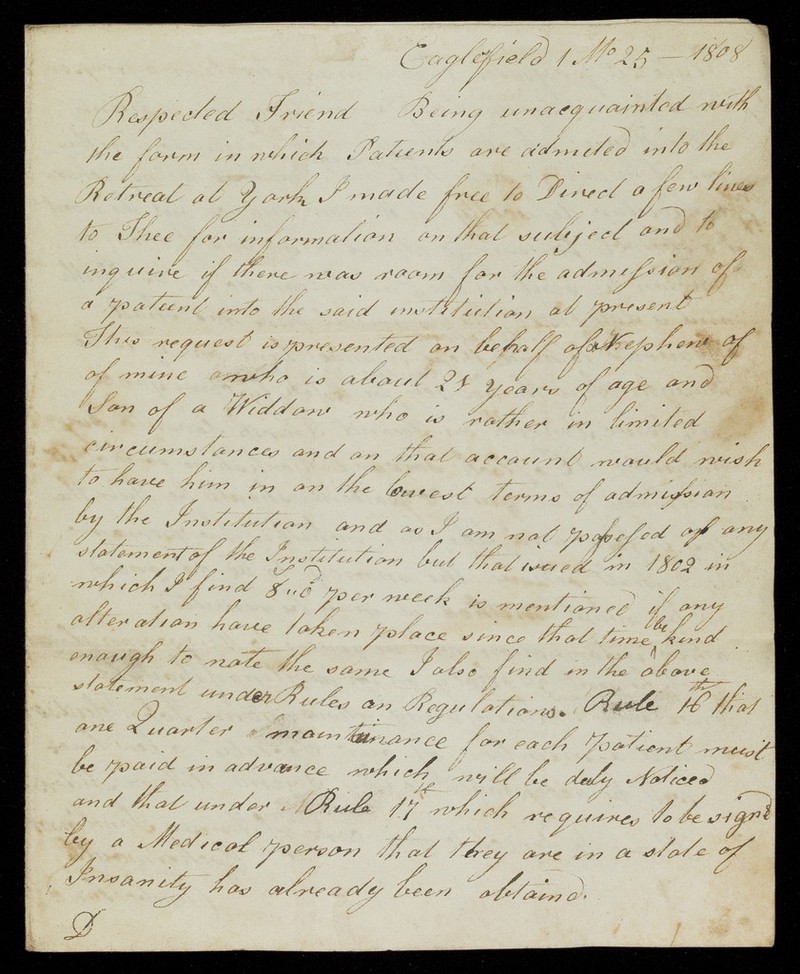 Eaglesfield 1 Mo 25 — 1808
Respected Friend Being unacquainted with
the form in which Patients are admited into the
Retreat at York I made free to Direct a few lines
to Thee for information on that subject and to
inquire if there was room for the admission of
a patient into the said institution at present
This request is presented on behalf of a Nephew of
of mine who is about 21 years of age and
Son of a Widdow who is rather in limited
circumstances and on that account would wish
to have him in on the lowest terms of admission
by the Institution and as I am not possessed of any
statement of the Institution but that issued in 1802 in
which I find 8s 0d per week is mentioned if any
alteration have taken place since that time be kind
enough to note the same I also find in the above
statement under Rules an Regulations. Rule 16th that
one Quarter maintinance for each patient must
be paid in advance which will be duly Noticed
and that under Rule 17th which requires to be signd
by a Medical person that they are in a state of
Insanity has already been obtaind.
D